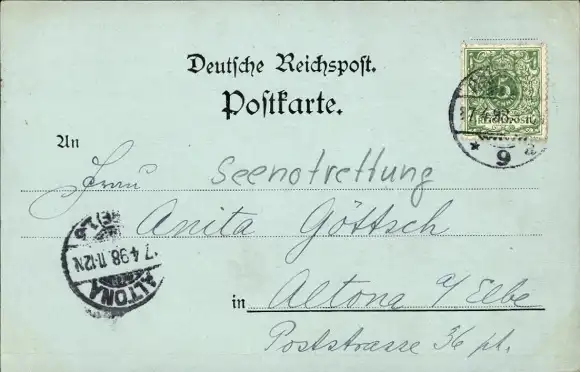 Deutsche Reichspost.
Postkarte.
An
Frau Seenotrettung
Anita Göttsch
in Altona a/Elbe
Poststrasse 36 pt.
5
REICHSPOST
7.4.98
* 9
7.4.98.11-12N
ALTONA